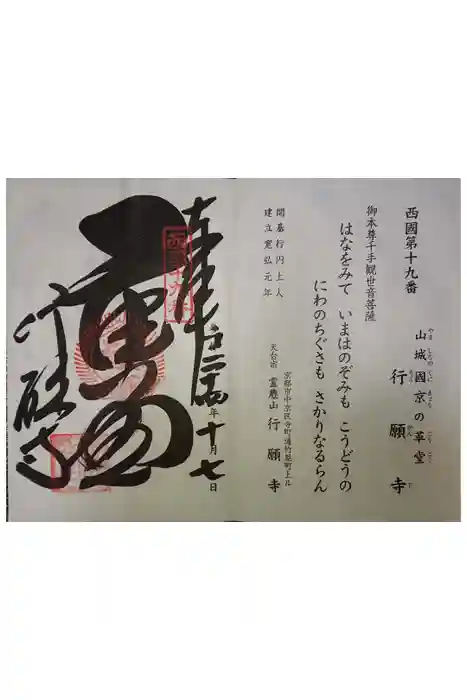 西國第十九番
山城國京の革堂
やましろのくにきょうのこうどう
行願寺
ぎょうがんじ
御本尊千手観世音菩薩
はなをみて いまはのぞみも こうどうの
にわのちぐさも さかりなるらん
開基行円上人
建立寛弘元年
京都市中京区寺町通竹屋町上ル
天台宗 霊麀山 行願寺
年十月七日
西国十九番
行願寺